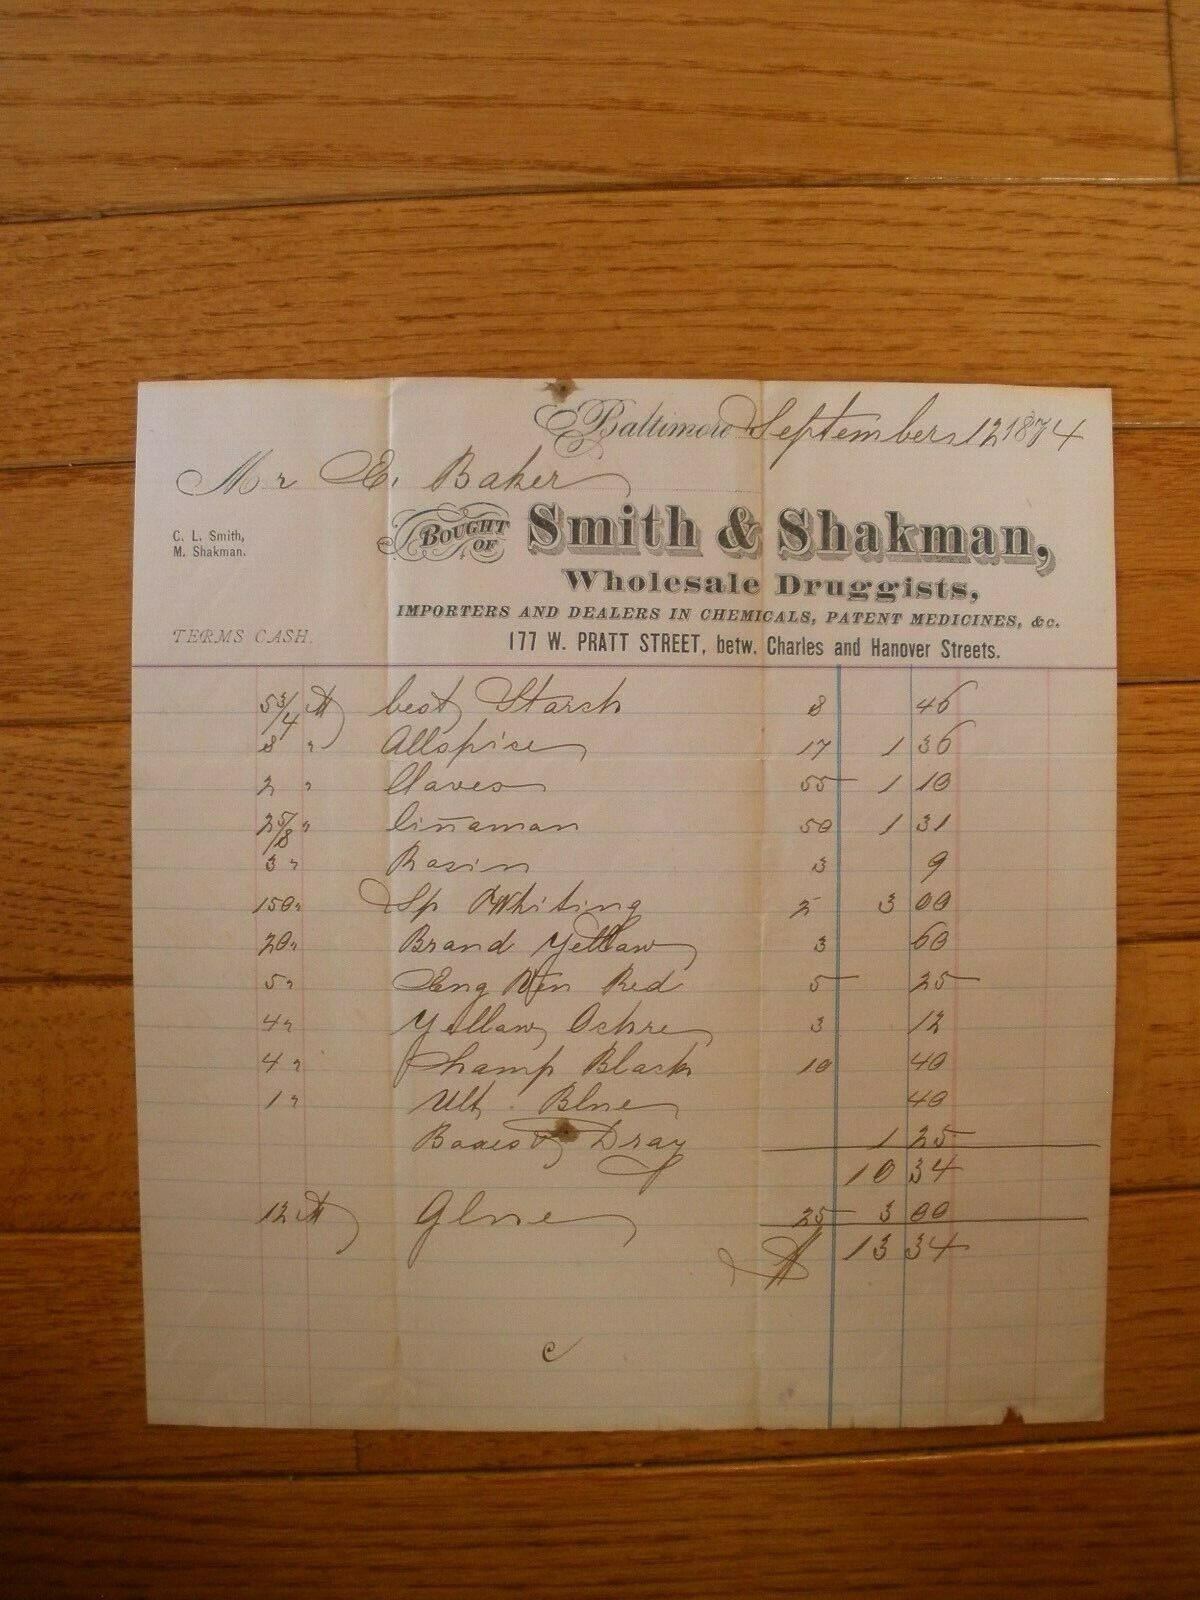 Baltimore September 12 1874
Mr E. Baker
C. L. Smith,
M. Shakman.
BOUGHT OF Smith & Shakman,
Wholesale Druggists,
IMPORTERS AND DEALERS IN CHEMICALS, PATENT MEDICINES, &c.
TERMS CASH.
177 W. PRATT STREET, betw. Charles and Hanover Streets.
5 3/4 lb best Starch 8 46
8 " Allspice 17 1 36
2 " Claves 55 1 10
2 5/8 " Cinaman 50 1 31
3 " Rasin 3 9
150 " Sp Whiting 2 3 00
20 " Brand Yellaw 3 60
5 " Eng Ven Red 5 25
4 " Yellaw Ochre 3 12
4 " Lamp Black 10 40
1 " Ult. Blue 40
Boxes & Dray 1 25
10 34
12 lb Glue 25 3 00
$ 13 34
c